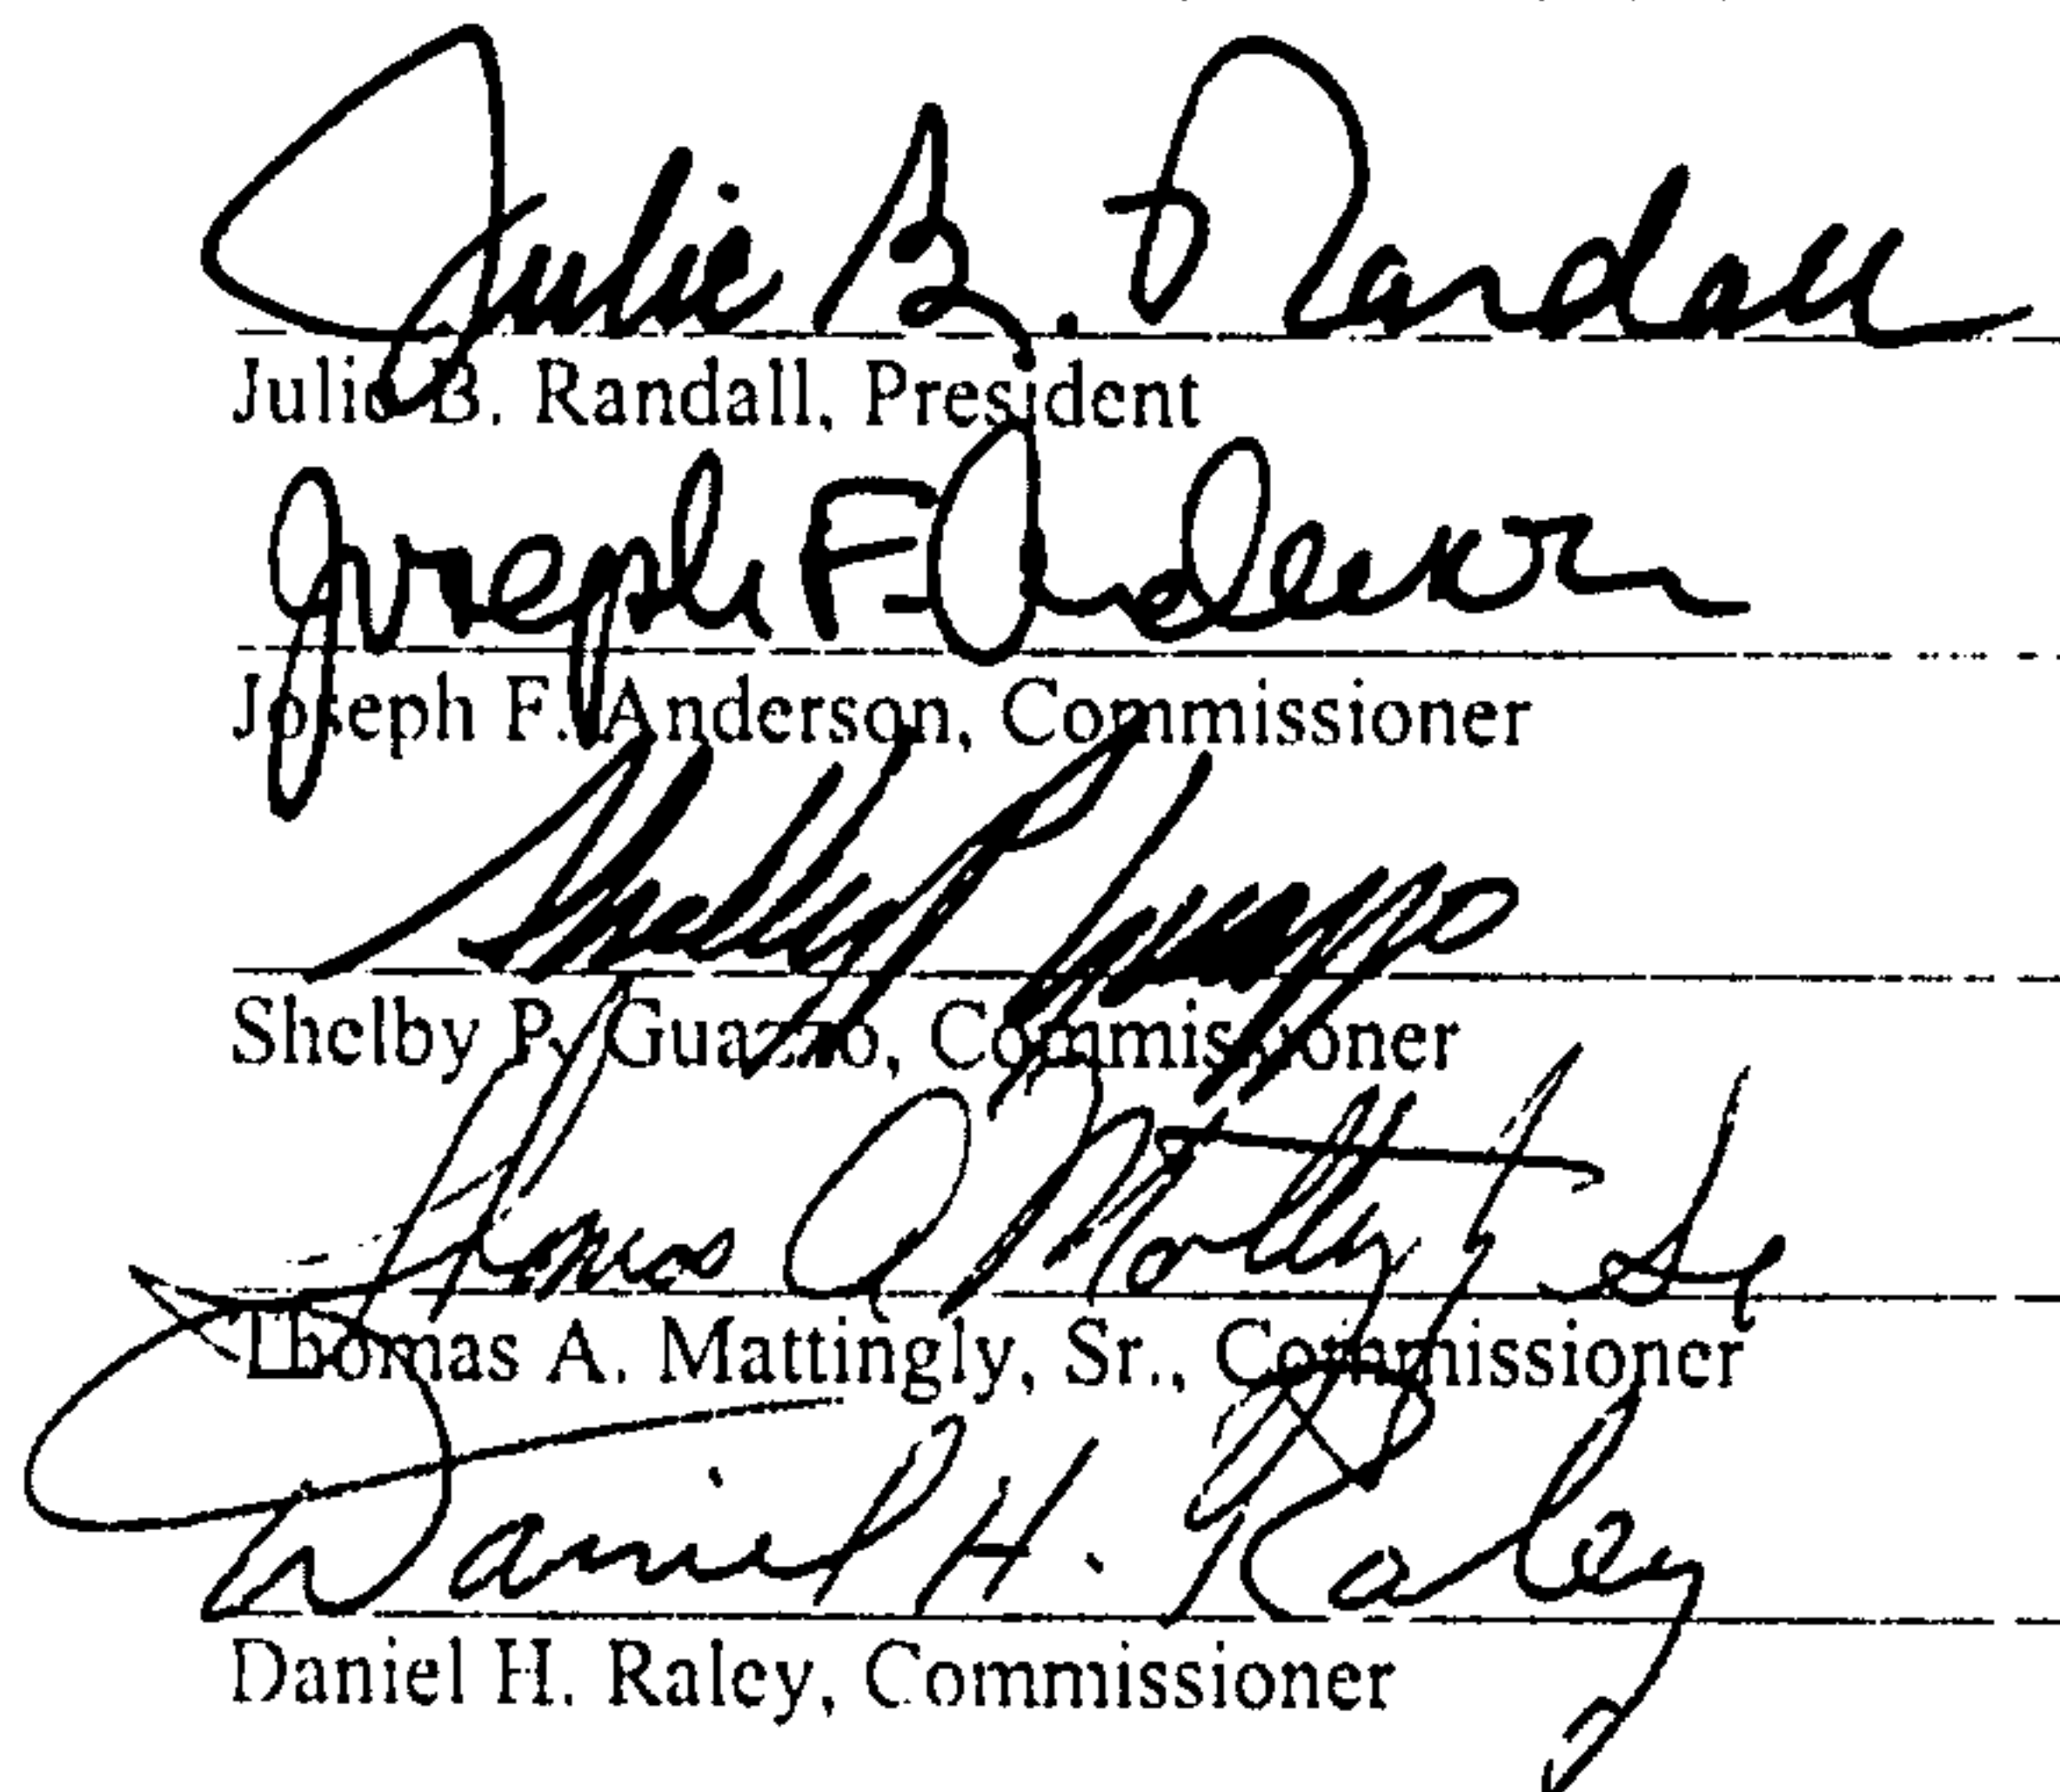 Julie B. Randall
Julie B. Randall, President
Joseph F. Anderson
Joseph F. Anderson, Commissioner
Shelby P. Guazzo
Shelby P. Guazzo, Commissioner
Thomas A Mattingly Sr
Thomas A. Mattingly, Sr., Commissioner
Daniel H. Raley
Daniel H. Raley, Commissioner